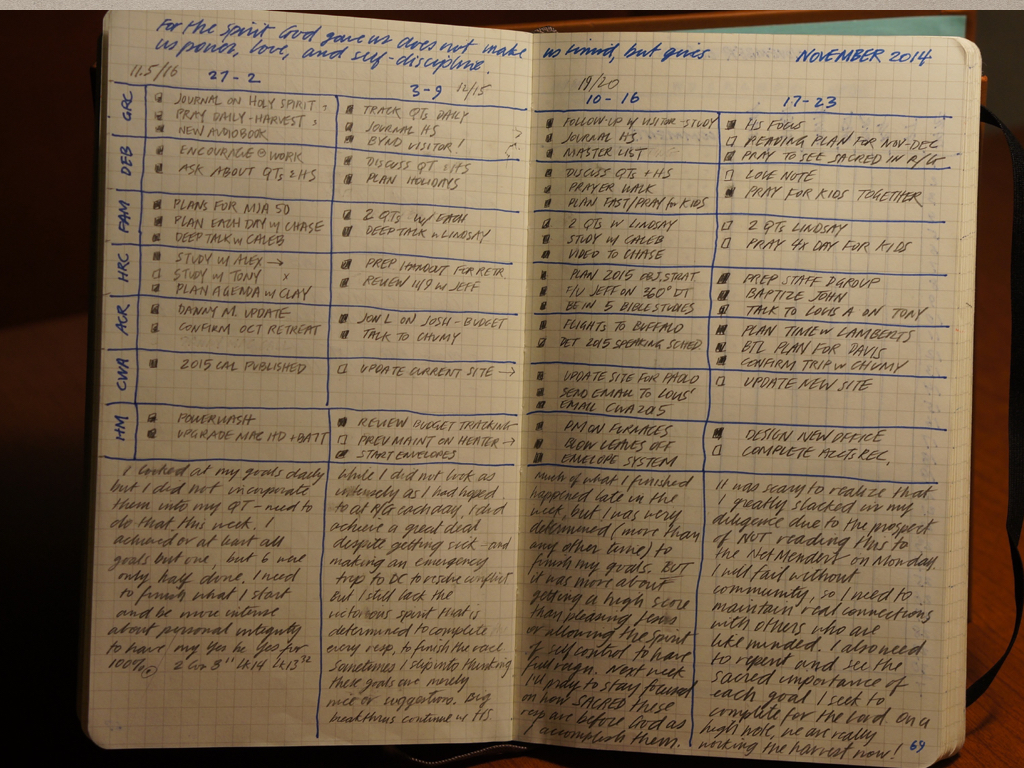 For the spirit God gave us does not make us timid, but gives
us power, love, and self-discipline.
NOVEMBER 2014
11.5/16
27-2
3-9 12/15
19/20
10-16
17-23
GRC
JOURNAL ON HOLY SPIRIT
PRAY DAILY-HARVEST
NEW AUDIOBOOK
TRACK QTs DAILY
JOURNAL HS
BYND VISITOR!
FOLLOW-UP W VISITOR-STUDY
JOURNAL HS
MASTER LIST
HS FOCUS
READING PLAN FOR NOV-DEC
PRAY TO SEE SACRED IN R/G
DEB
ENCOURAGE @ WORK
ASK ABOUT QTs & HS
DISCUSS QT & HS
PLAN HOLIDAYS
DISCUSS QTs + HS
PRAYER WALK
PLAN FAST/PRAY for KIDS
LOVE NOTE
PRAY FOR KIDS TOGETHER
FAM
PLANS FOR MIA 50
PLAN EACH DAY w CHASE
DEEP TALK w CALEB
2 QTs W/ EACH
DEEP TALK w LINDSAY
2 QTs W LINDSAY
STUDY w CALEB
VIDEO TO CHASE
2 QTs LINDSAY
PRAY 4x DAY FOR KIDS
HRC
STUDY w ALEX →
STUDY w TONY x
PLAN AGENDA w CLAY
PREP HANDOUT FOR RETR.
REVIEW 11/9 w JEFF
PLAN 2015 OBJ, STRAT.
F/U JEFF ON 360° DT
BE IN 5 BIBLE STUDIES
PREP STAFF DGROUP
BAPTIZE JOHN
TALK TO LOUIS A ON TONY
AGR
DANNY M. UPDATE
CONFIRM OCT RETREAT
JON L ON JOSH-BUDGET
TALK TO CHUMY
FLIGHTS TO BUFFALO
DET 2015 SPEAKING SCHED
PLAN TIME w LAMBERTS
BTL PLAN FOR DAVIS
CONFIRM TRIP w CHUMY
CWA
2015 CAL PUBLISHED
UPDATE CURRENT SITE →
UPDATE SITE FOR PAOLO
SEND EMAIL TO LOUIS'
EMAIL CWA 205
UPDATE NEW SITE
HM
POWERWASH
UPGRADE MAC HD + BATT
REVIEW BUDGET TRACKING
PREV MAINT ON HEATER →
START ENVELOPES
PM ON FURNACES
BLOW LEAVES OFF
ENVELOPE SYSTEM
DESIGN NEW OFFICE
COMPLETE ACCT REC.
I looked at my goals daily
but I did not incorporate
them into my QT - need to
do that this week. I
achieved or at least all
goals but one, but 6 were
only half done. I need
to finish what I start
and be more intense
about personal integrity
to have my Yes be Yes for
100% 2 Cor 8:11 Lk 14 Lk 13:32
While I did not look as
intensely as I had hoped
to at M/G each day, I did
achieve a great deal
despite getting sick and
making an emergency
trip to DC to resolve conflict
but I still lack the
victorious spirit that is
determined to complete
every resp, to finish the race.
Sometimes I slip into thinking
these goals are merely
nice or suggestions. Big
breakthrus continue w HS
Much of what I finished
happened late in the
week, but I was very
determined (more than
any other time) to
finish my goals. BUT
it was more about
getting a high score
than pleasing Jesus
or allowing the Spirit
of self control to have
full reign. Next week
I'll pray to stay focused
on how SACRED these
resp are before God as
I accomplish them.
It was scary to realize that
I greatly slacked in my
diligence due to the prospect
of NOT reading this to
the Net Menders on Monday.
I will fail without
community, so I need to
maintain real connections
with others who are
like minded. I also need
to repent and see the
sacred importance of
each goal I seek to
complete for the Lord. On a
high note, we are really
working the harvest now!
69